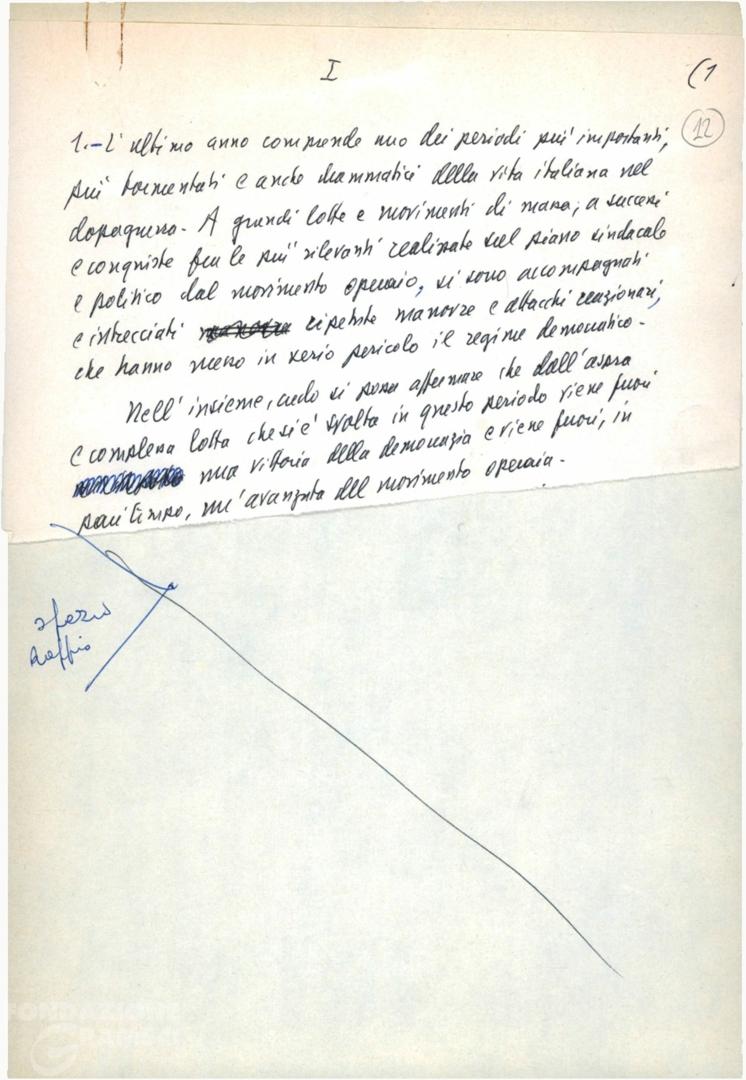 I
(1
12
1.- L'ultimo anno comprende uno dei periodi più importanti,
più tormentati e anche drammatici della vita italiana nel
dopoguerra. A grandi lotte e movimenti di massa, a successi
e conquiste fra le più rilevanti realizzate sul piano sindacale
e politico dal movimento operaio, si sono accompagnati
e intrecciati ripetute manovre e attacchi reazionari,
che hanno messo in serio pericolo il regime democratico.
Nell'insieme, credo si possa affermare che dall'aspra
e complessa lotta che si è svolta in questo periodo viene fuori
una vittoria della democrazia e viene fuori, in
pari tempo, un'avanzata del movimento operaio.
spazio
doppio
FONDAZIONE
GRAMSCI